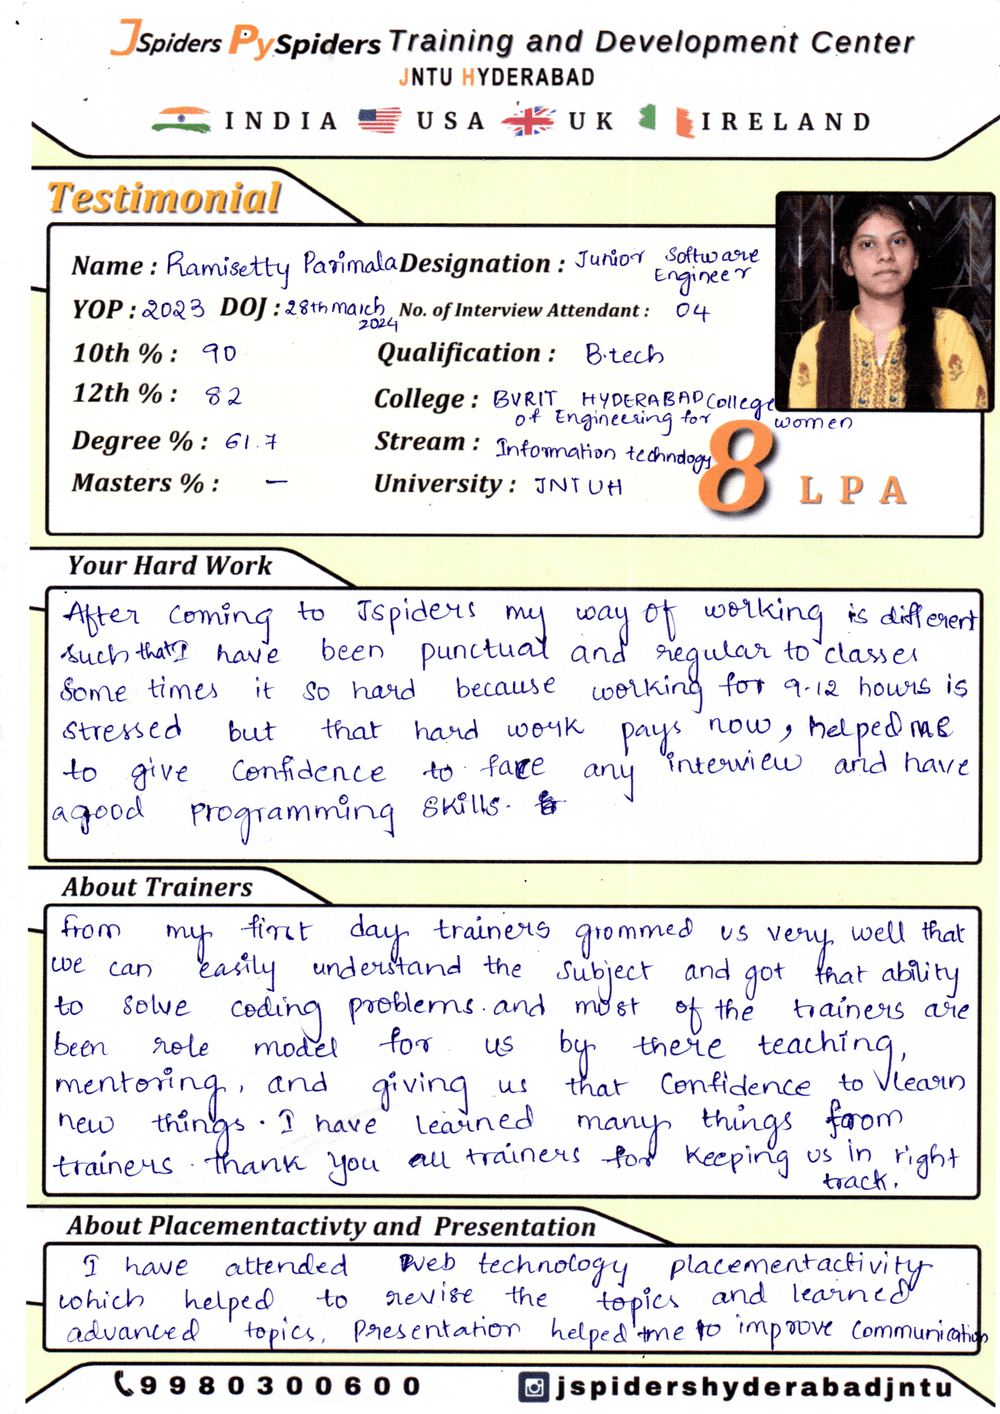 JSpiders PySpiders Training and Development Center
JNTU HYDERABAD
INDIA USA UK IRELAND
Testimonial
Name : Ramisetty Parimala Designation : Junior Software Engineer
YOP : 2023 DOJ : 28th march 2024 No. of Interview Attendant : 04
10th % : 90 Qualification : B.tech
12th % : 82 College : BVRIT HYDERABAD College of Engineering for women
Degree % : 61.7 Stream : Information technology
Masters % : — University : JNTUH
8 LPA
Your Hard Work
After coming to Jspiders my way of working is different
such that I have been punctual and regular to classes
Some times it so hard because working for 9-12 hours is
stressed but that hard work pays now, helped me
to give Confidence to face any interview and have
a good programming skills.
About Trainers
from my first day trainers grommed us very well that
we can easily understand the subject and got that ability
to solve coding problems. and most of the trainers are
been role model for us by there teaching,
mentoring, and giving us that Confidence to learn
new things. I have learned many things from
trainers. thank you all trainers for keeping us in right
track.
About Placementactivty and Presentation
I have attended Web technology placementactivity
which helped to revise the topics and learned
advanced topics, presentation helped me to improve communication
9980300600 jspidershyderabadjntu